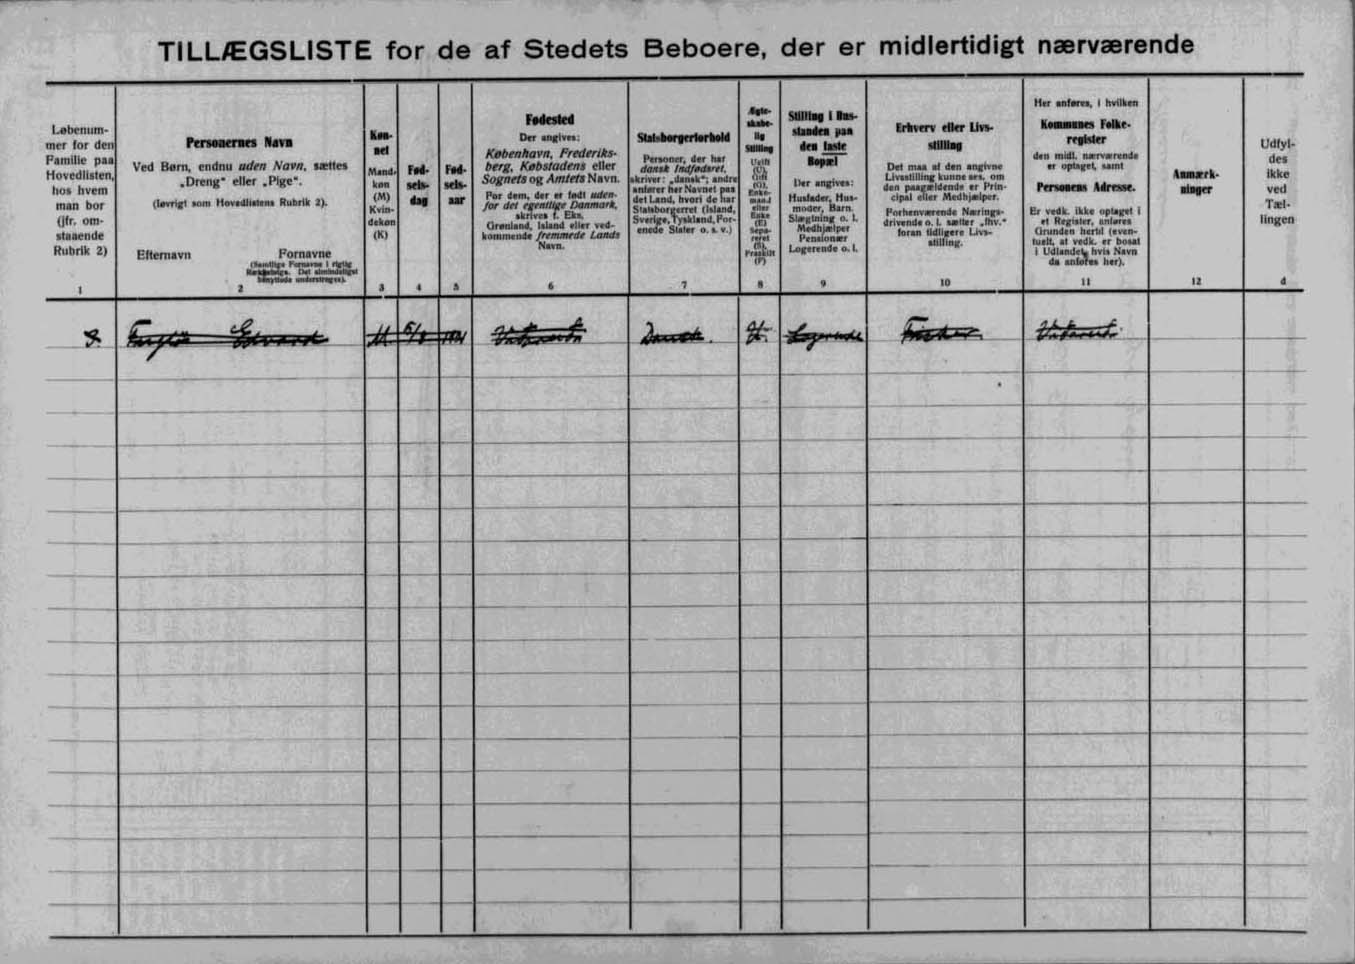 TILLÆGSLISTE for de af Stedets Beboere, der er midlertidigt nærværende
Løbenum-
mer for den
Familie paa
Hovedlisten,
hos hvem
man bor
(jfr. om-
staaende
Rubrik 2)
1
Personernes Navn
Ved Børn, endnu uden Navn, sættes
„Dreng“ eller „Pige“.
(Iøvrigt som Hovedlistens Rubrik 2).
Efternavn
Fornavne
(Samtlige Fornavne i rigtig
Rækkefølge. Det almindeligst
benyttede understreges).
2
Køn-
net
Mand-
køn
(M)
Kvin-
dekøn
(K)
3
Fød-
sels-
dag
4
Fød-
sels-
aar
5
Fødested
Der angives:
København, Frederiks-
berg, Købstadens eller
Sognets og Amtets Navn.
For dem, der er født uden-
for det egentlige Danmark,
skrives f. Eks.
Grønland, Island eller ved-
kommende fremmede Lands
Navn.
6
Statsborgerforhold
Personer, der har
dansk Indfødsret,
skriver: „dansk“; andre
anfører her Navnet paa
det Land, hvori de har
Statsborgerret (Island,
Sverige, Tyskland, For-
enede Stater o. s. v.)
7
Ægte-
skabe-
lig
Stilling
Ugift
(U),
Gift
(G),
Enke-
mand
eller
Enke
(E)
Sepa-
reret
(S),
Fraskilt
(F)
8
Stilling i Hus-
standen paa
den faste
Bopæl
Der angives:
Husfader, Hus-
moder, Barn,
Slægtning o. l.
Medhjælper
Pensionær
Logerende o. l.
9
Erhverv eller Livs-
stilling
Det maa af den angivne
Livsstilling kunne ses, om
den paagældende er Prin-
cipal eller Medhjælper.
Forhenværende Nærings-
drivende o. l. sætter „fhv.“
foran tidligere Livs-
stilling.
10
Her anføres, i hvilken
Kommunes Folke-
register
den midl. nærværende
er optaget, samt
Personens Adresse.
Er vedk. ikke optaget i
et Register, anføres
Grunden hertil (even-
tuelt, at vedk. er bosat
i Udlandet, hvis Navn
da anføres her).
11
Anmærk-
ninger
12
Udfyl-
des
ikke
ved
Tæl-
lingen
d
Edvard M Dansk. U. Logerende Fisker